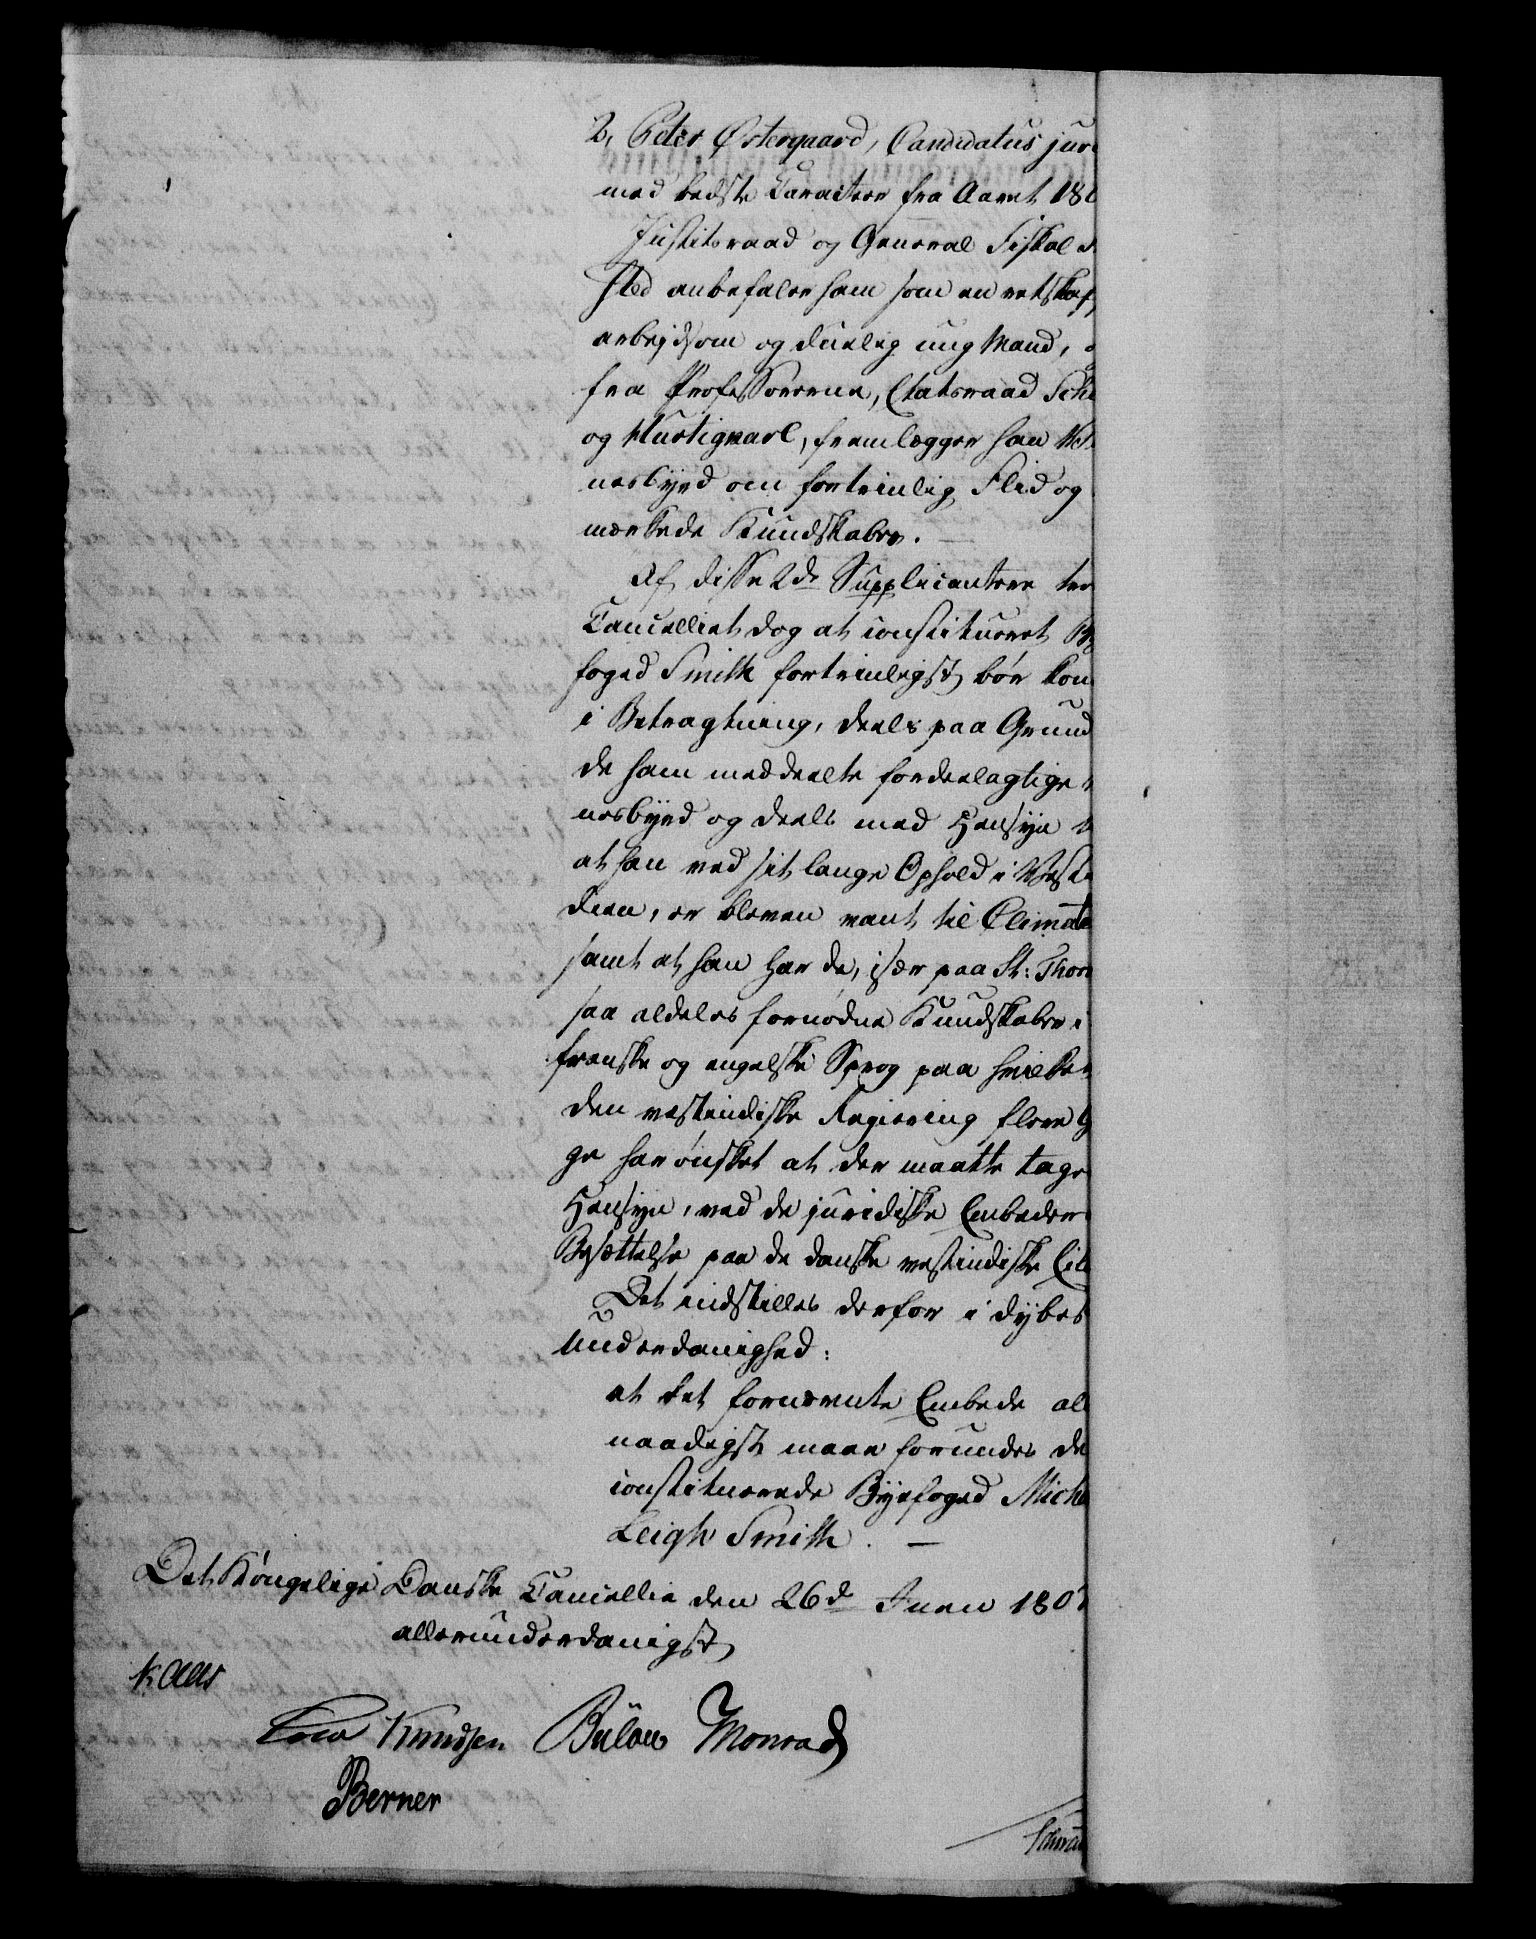 2, Peter Østergaard, Candidatus juri
med bedste Caracteer fra Aaret 180
Justitsraad og General Fiskal
sted anbefaler ham som en retskaf
arbejdsom og duelig ung Mand, o
fra Professorerne, Etatsraad Schl
og Hurtigkarl, fremlægger han Vid
nesbyrd om fortrinlig Flid og
mærkede Kundskaber. —
Af disse 2de Supplicantere tro
Cancelliet dog at constitueret By
foged Smith fortrinligst bør kom
i Betragtning, deels paa Grund
de ham meddeelte fordeelagtige
nesbyrd og deels med Hensyn t
at han ved sit lange Ophold i Vesti
dien, er bleven vant til Climate
samt at han har de, især paa St: Thom
saa aldeles fornødne Kundskaber i
franske og engelske Sprog paa hvilket
den vestindiske Regiering flere G
ge har ønsket at der maatte tages
Hensyn, ved de juridiske Embeder
Besættelse paa de danske vestindiske Eil
Det indstilles derfor i dybes
Underdanighed:
at det fornævnte Embede all
naadigst maae forundes de
constituerede Byefoged Mich
Leigh Smith. —
Det Kongelige Danske Cancellie den 26d Juni 180
allerunderdanigst
Kaas
Knudsen Bülow Monrad
Berner